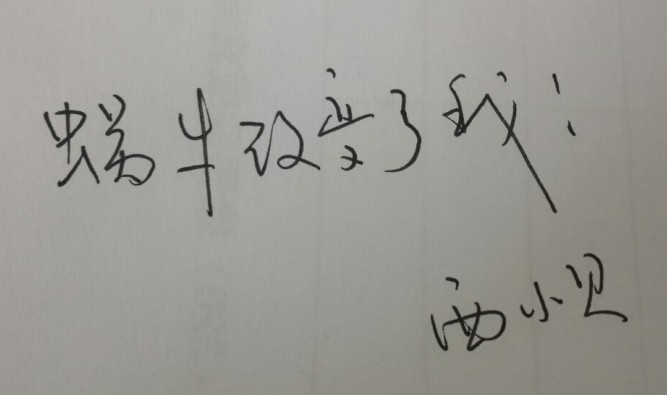 蜗牛改变了我!
西小贝